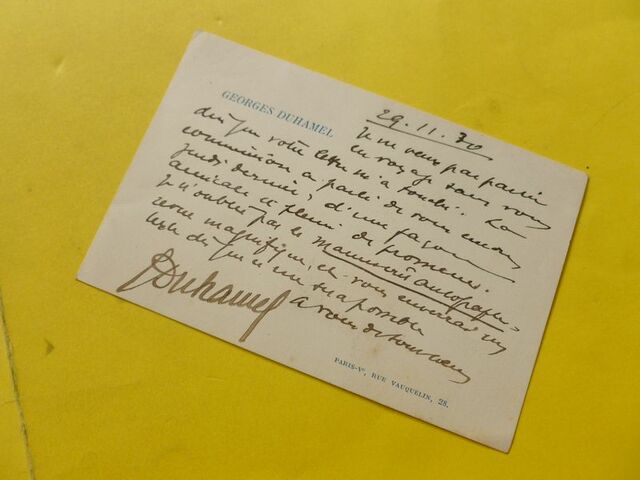 GEORGES DUHAMEL
29.11.30
Je ne veux pas partir
en voyage sans vous
dire que votre lettre m'a touché. La
commission a parlé de vous encore
jeudi dernier, d'une façon
amicale et pleine de promesses.
Je n'oublie pas le Manuscrit autographe,
revue magnifique, et vous enverrai un
texte dès que ce me sera possible
A vous de tout coeur
GDuhamel
PARIS-Ve, RUE VAUQUELIN, 28.